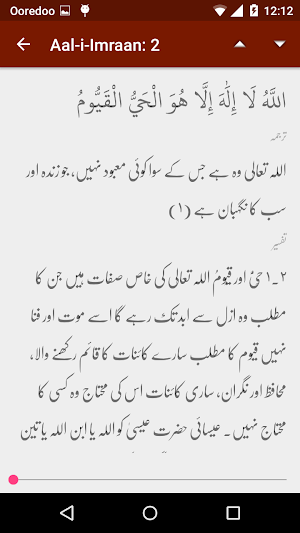 Ooredoo 12:12
Aal-i-Imraan: 2
اللَّهُ لَا إِلَٰهَ إِلَّا هُوَ الْحَيُّ الْقَيُّومُ
ترجمہ
اللہ تعالی وہ ہے جس کے سوا کوئی معبود نہیں، جو زندہ اور
سب کا نگہبان ہے (۱)
تفسیر
۲۔۱ حیّ اور قیوم اللہ تعالی کی خاص صفات ہیں جن کا
مطلب وہ ازل سے ابد تک رہے گا اسے موت اور فنا
نہیں قیوم کا مطلب سارے کائنات کا قائم رکھنے والا،
محافظ اور نگران، ساری کائنات اس کی محتاج وہ کسی کا
محتاج نہیں۔ عیسائی حضرت عیسیٰ کو اللہ یا ابن اللہ یا تین